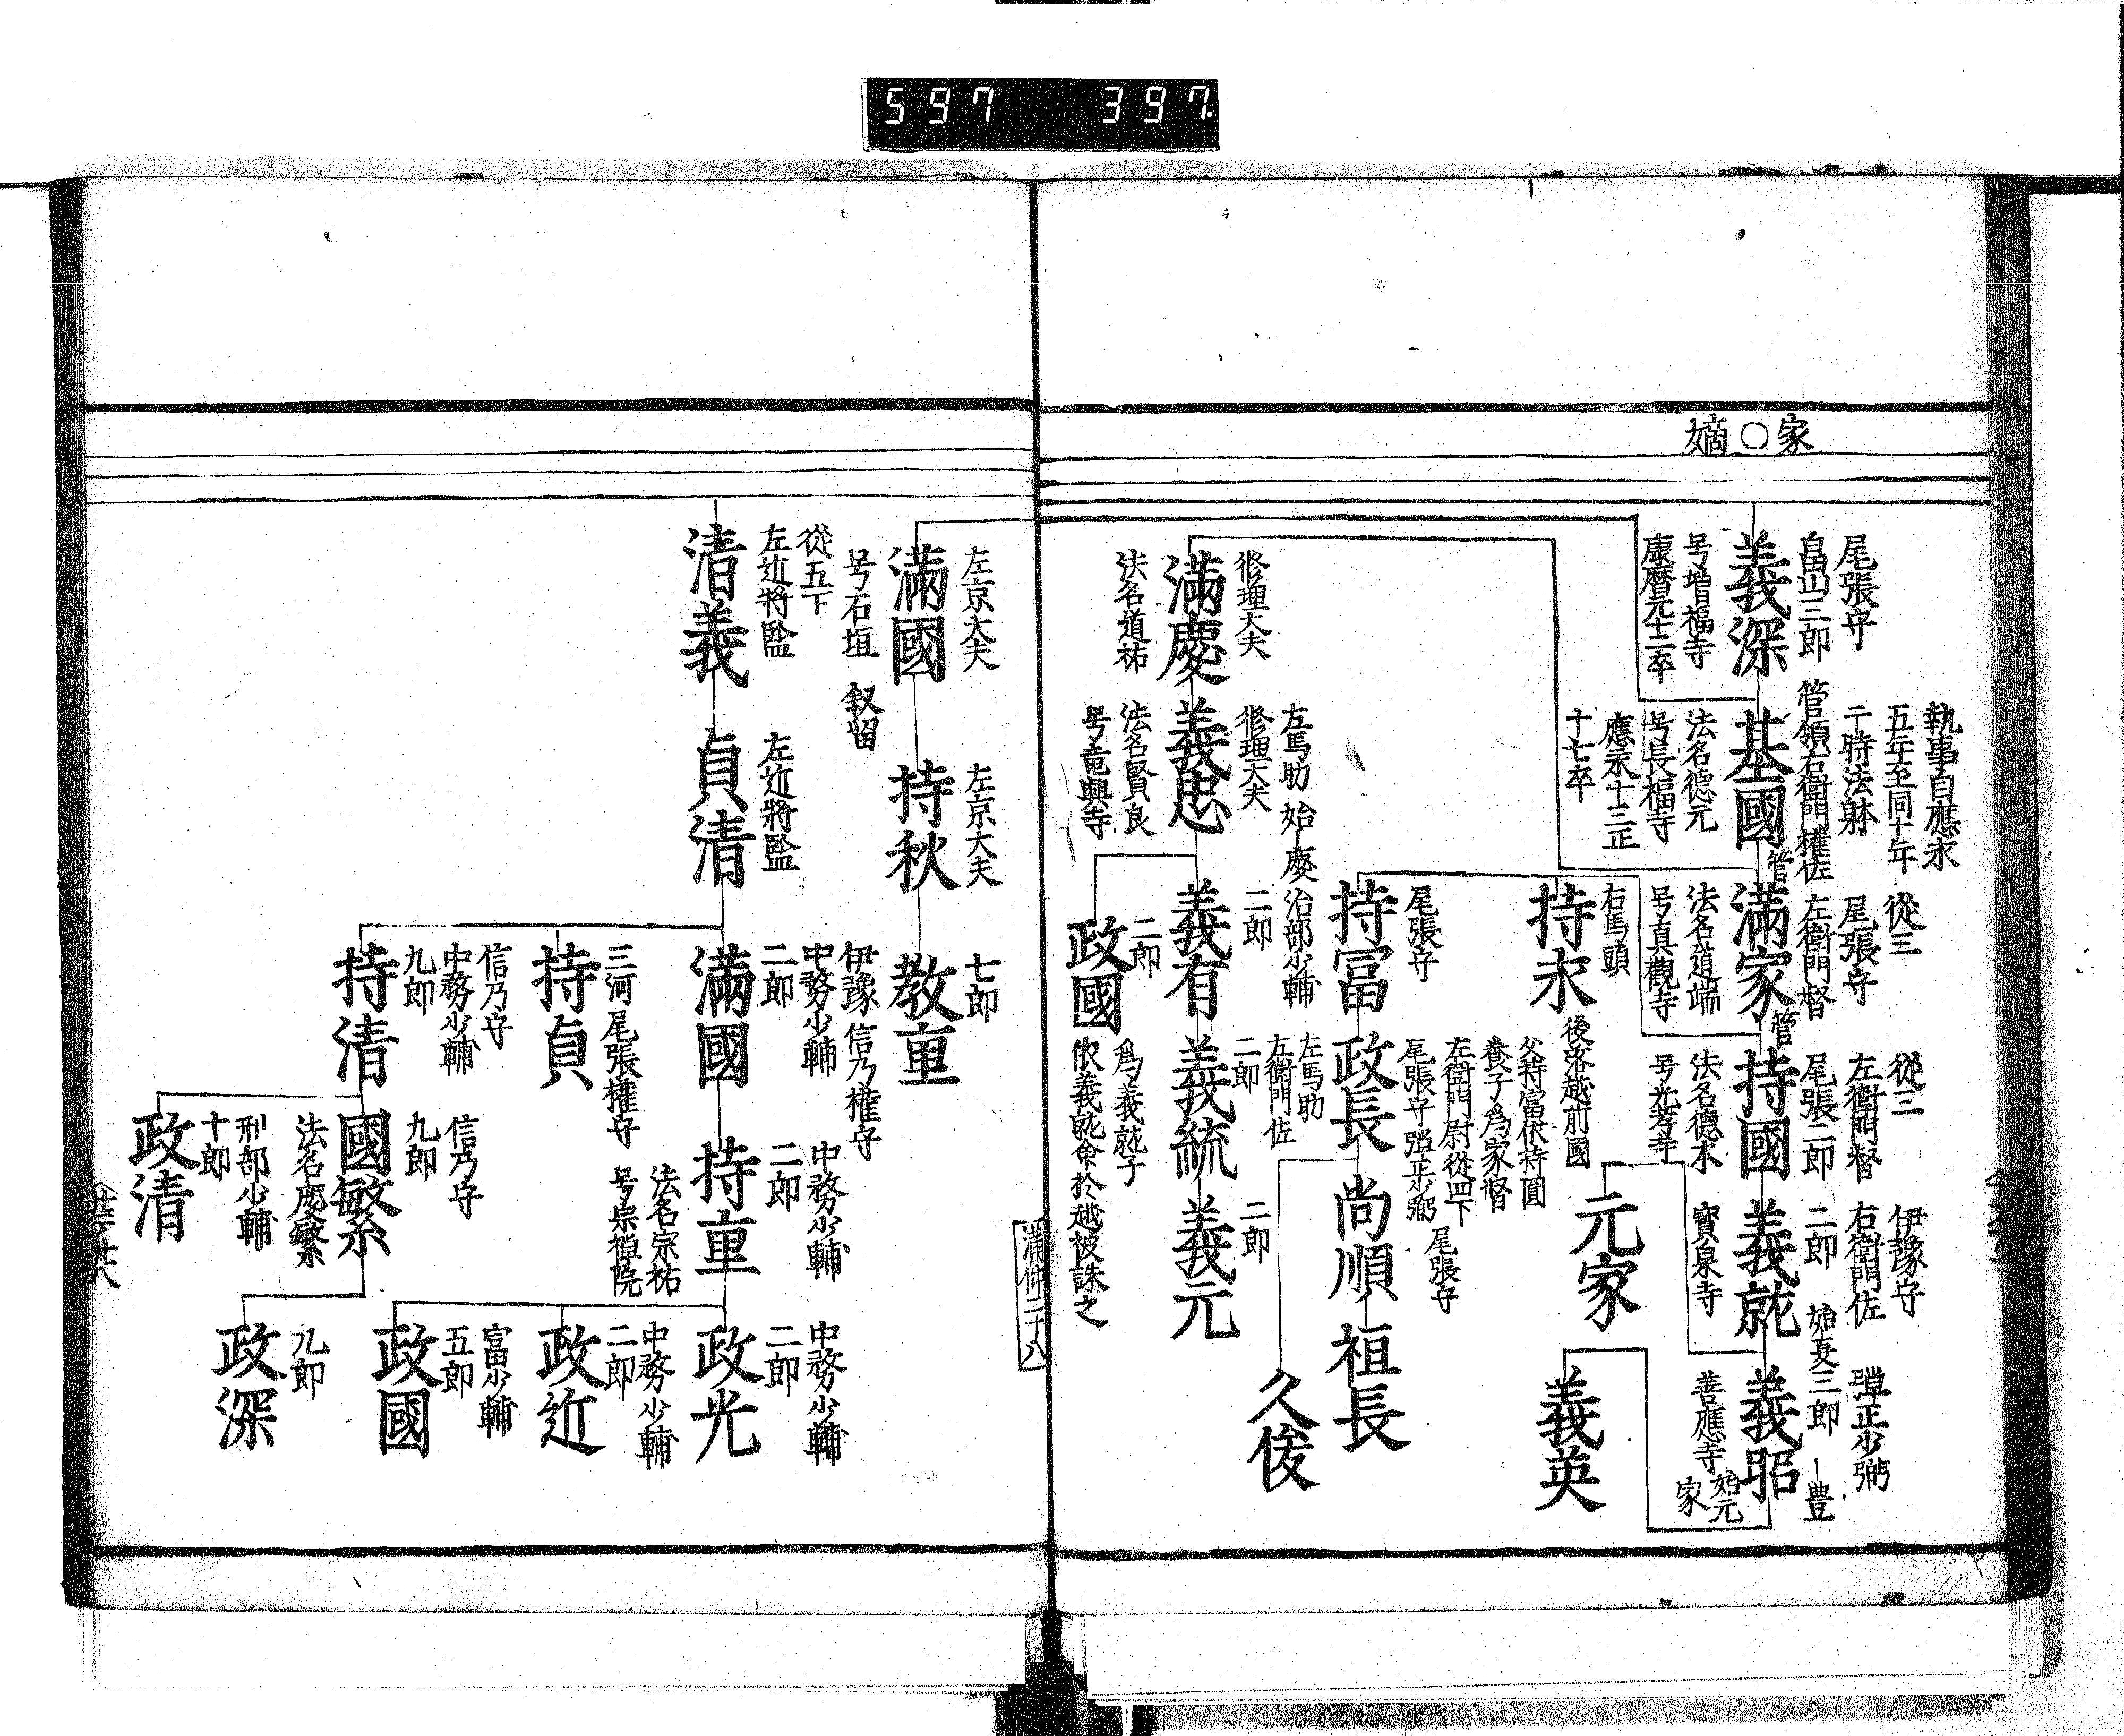 597 397
家○嫡
尾張守
畠山三郎
義深
号増福寺
康暦元十二卒
執事自應永
五年至同十年
于時法躰
管領右衛門權佐
基國
法名德元
号長福寺
應永十三正
十七卒
從三
尾張守
左衛門督
管
滿家
法名道端
号真觀寺
從三
左衛門督
尾張二郎
管
持國
法名德本
号光孝寺
伊豫守
右衛門佐
二郎
始夏三郎
義就
寳泉寺
彈正少弼
豊
義昭
善應寺
始元
家
義英
元家
右馬頭
持永
後落越前國
尾張守
持富
父持富依持國
養子爲家督
左衛門尉從四下
尾張守彈正少弼
政長
尾張守
尚順
祖長
久俊
修理大夫
滿慶
法名道祐
左馬助 始慶
修理大夫
義忠
法名賢良
号竜興寺
治部少輔
二郎
義有
左馬助
左衛門佐
二郎
義統
二郎
義元
二郎
政國
爲義就子
依義就命於越被誅之
滿仲二十八
左京大夫
滿國
号石垣
叙留
左京大夫
持秋
七郎
教重
從五下
左近將監
清義
左近將監
貞清
伊豫信乃權守
中務少輔
二郎
滿國
中務少輔
二郎
持重
法名宗祐
号宗禅院
中務少輔
二郎
政光
中務少輔
二郎
政近
富少輔
五郎
政國
三河尾張權守
持貞
信乃守
中務少輔
九郎
持清
信乃守
九郎
國繁
法名慶繁
九郎
政深
刑部少輔
十郎
政清